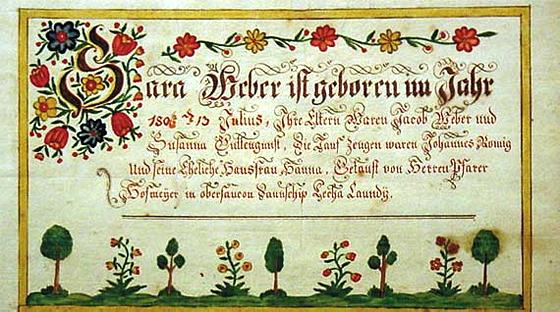 Sara Weber ist geboren im Jahr
13 Julius, Ihre Eltern Waren Jacob Weber und
Susanna Guttengunst, Die Tauf zeugen waren Johannes Romig
Und seine Eheliche Hausfrau Hanna, Getauft von Herren Pfarer
Hofmeyer in obersaucon Daunschip Lecha Caundy.